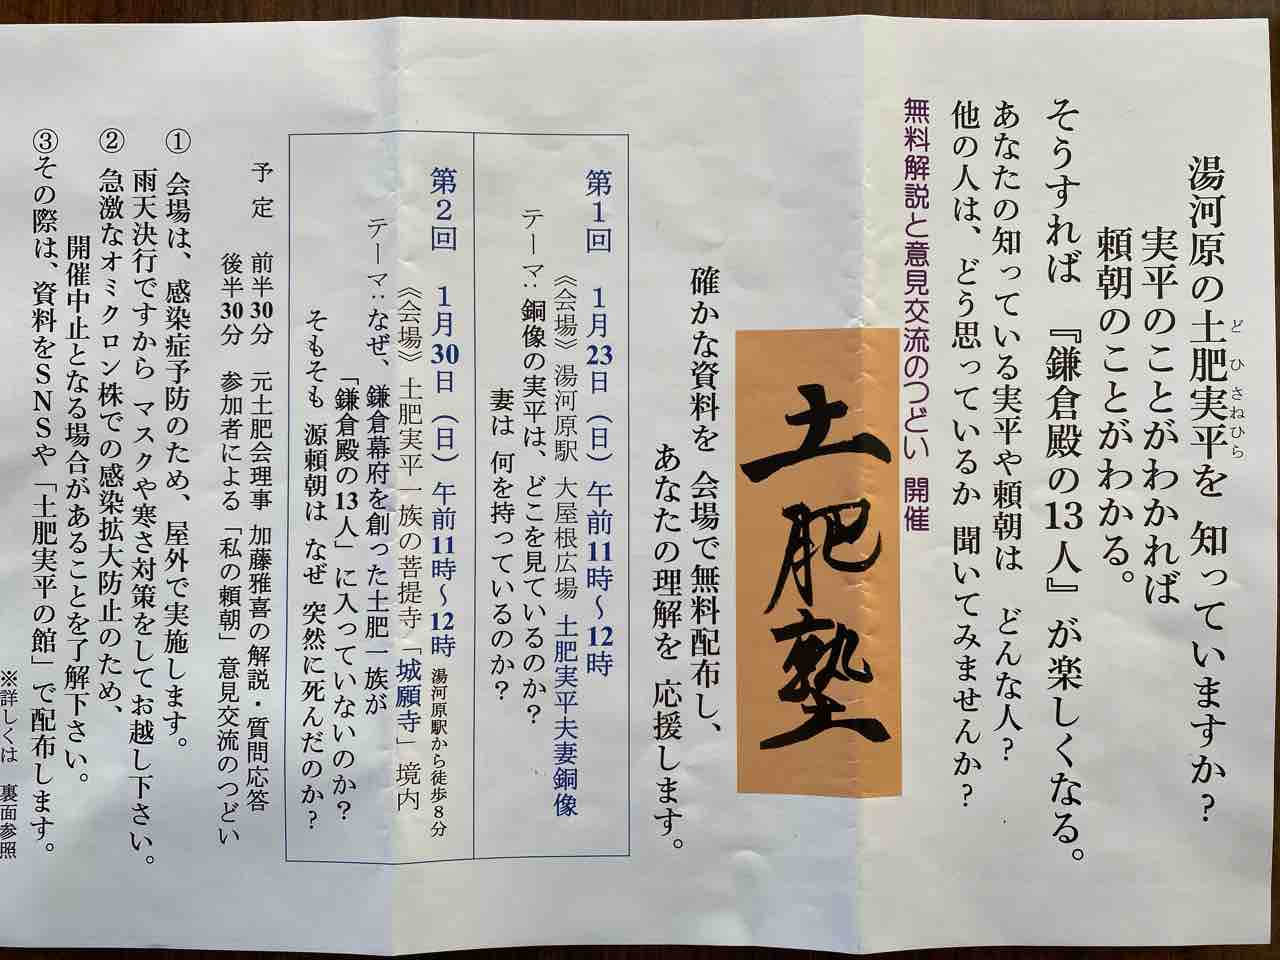 湯河原の土肥実平を 知っていますか？
どひさねひら
実平のことがわかれば
頼朝のことがわかる。
そうすれば 『鎌倉殿の13人』が楽しくなる。
あなたの知っている実平や頼朝は どんな人？
他の人は、どう思っているか 聞いてみませんか？
無料解説と意見交流のつどい 開催
土肥塾
確かな資料を 会場で無料配布し、
あなたの理解を 応援します。
第１回 １月23日（日）午前11時～12時
《会場》湯河原駅 大屋根広場 土肥実平夫妻銅像
テーマ：銅像の実平は、どこを見ているのか？
妻は 何を持っているのか？
第２回 １月30日（日）午前11時～12時 湯河原駅から徒歩８分
《会場》土肥実平一族の菩提寺「城願寺」境内
テーマ：なぜ、鎌倉幕府を創った土肥一族が
「鎌倉殿の13人」に入っていないのか？
そもそも 源頼朝は なぜ 突然に死んだのか？
予定 前半30分 元土肥会理事 加藤雅喜の解説・質問応答
後半30分 参加者による「私の頼朝」意見交流のつどい
① 会場は、感染症予防のため、屋外で実施します。
雨天決行ですから マスクや寒さ対策をしてお越し下さい。
② 急激なオミクロン株での感染拡大防止のため、
開催中止となる場合があることを了解下さい。
③その際は、資料をＳＮＳや「土肥実平の館」で配布します。
※詳しくは 裏面参照